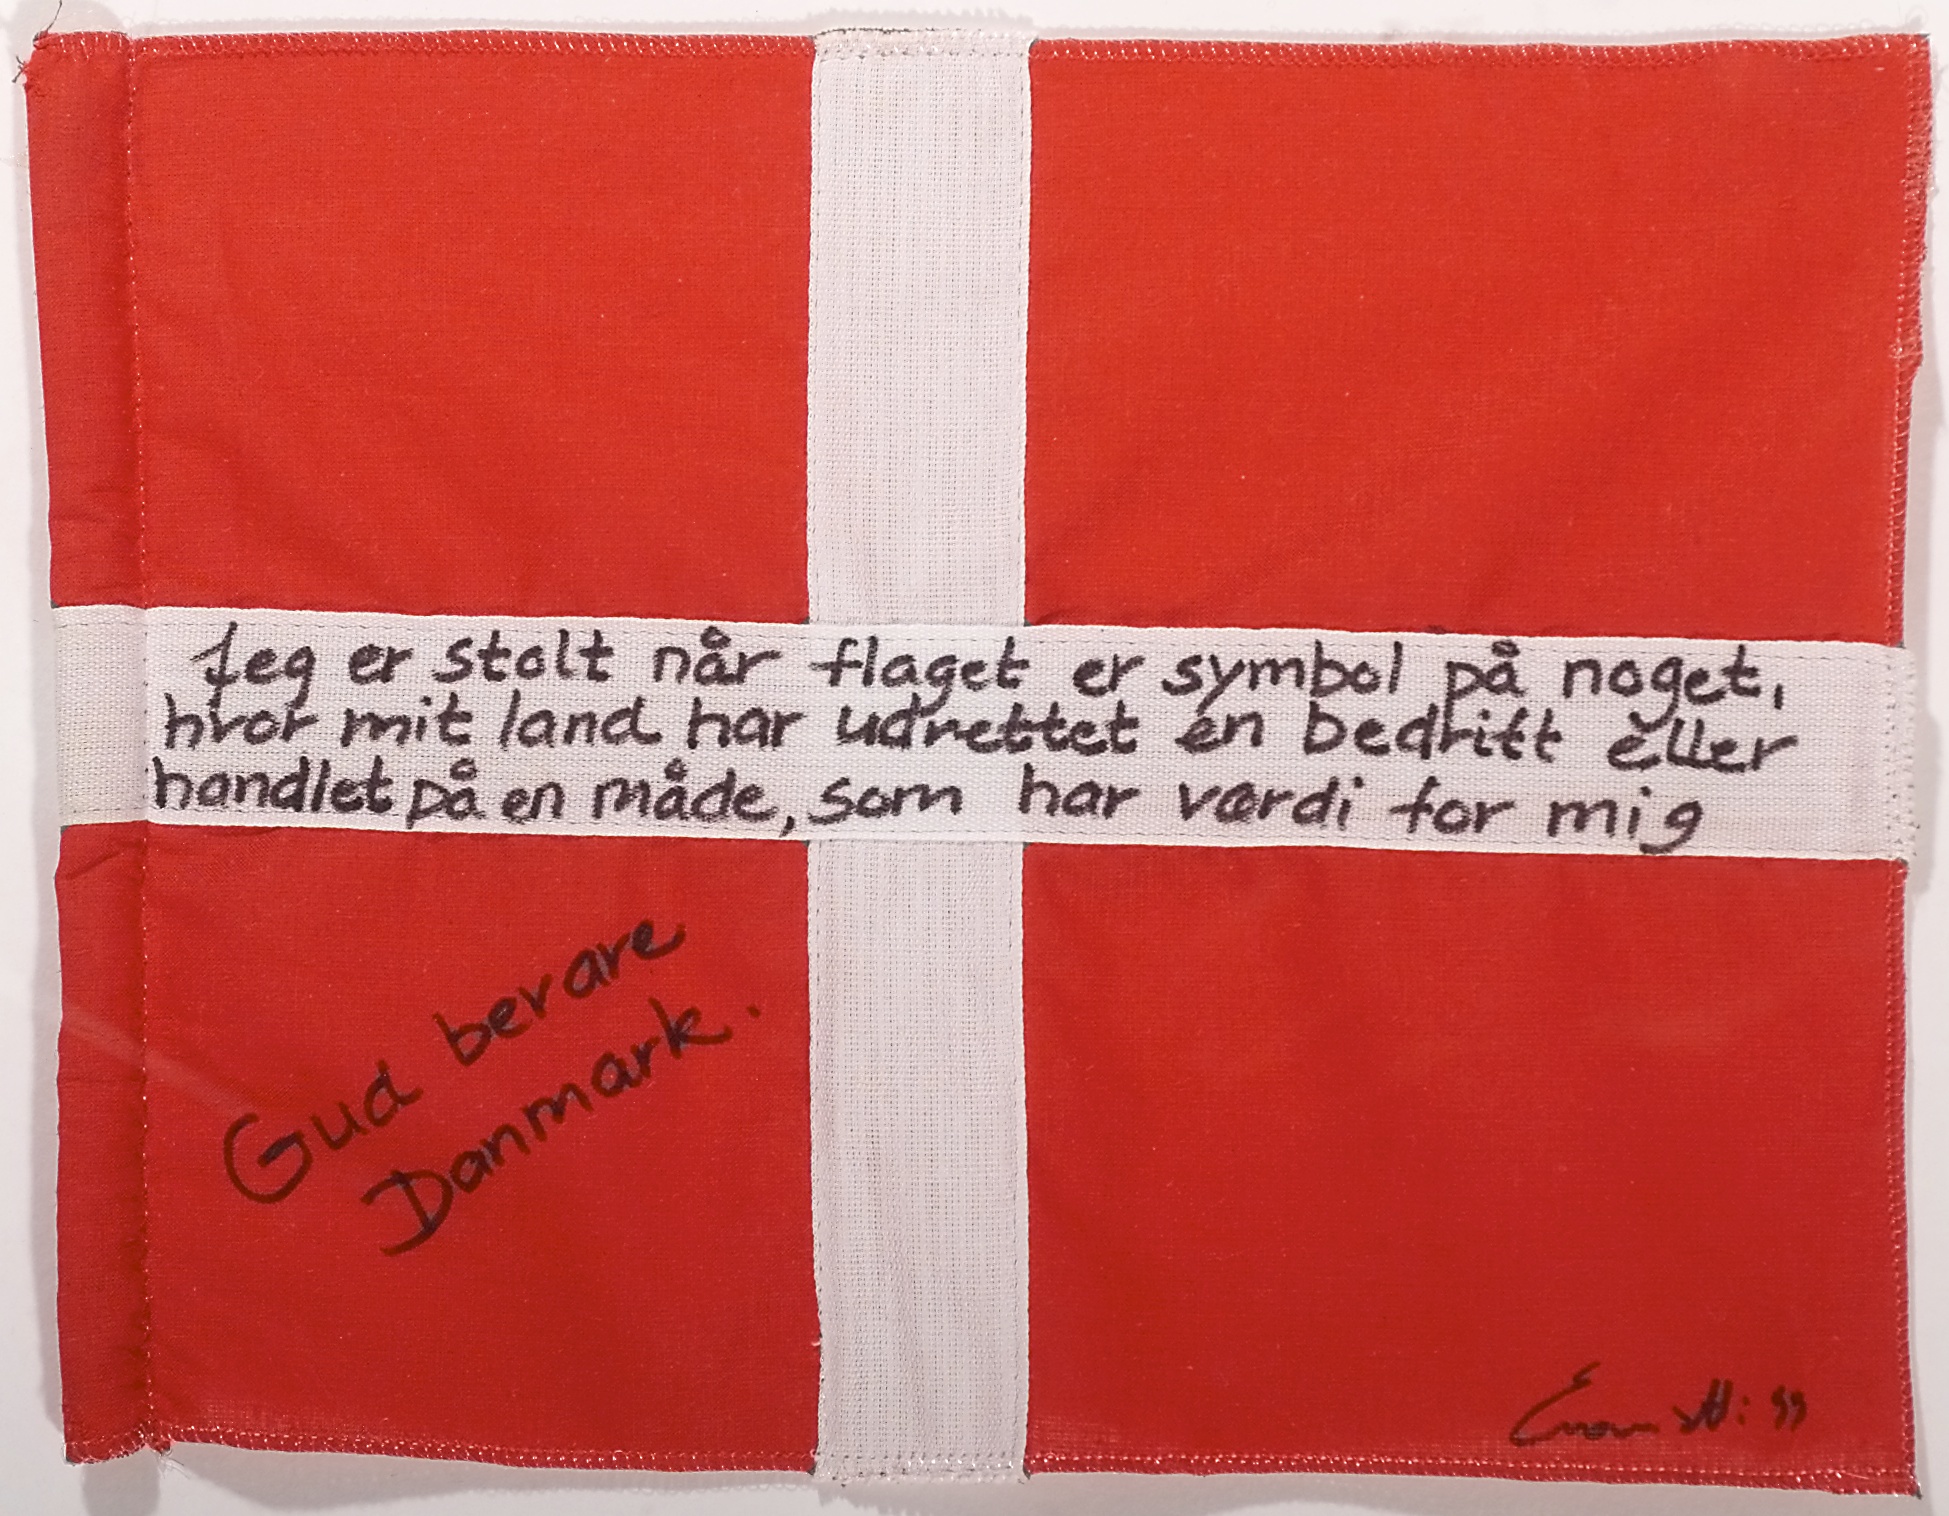 Jeg er stolt når flaget er symbol på noget,
hvor mit land har udrettet en bedrift eller
handlet på en måde, som har værdi for mig
Gud bevare
Danmark.